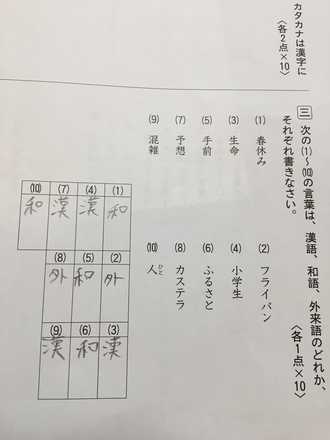 カタカナは漢字に
〈各2点×10〉
三 次の(1)~(10)の言葉は、漢語、和語、外来語のどれか、
それぞれ書きなさい。
〈各1点×10〉
(1) 春休み
(2) フライパン
(3) 生命
(4) 小学生
(5) 手前
(6) ふるさと
(7) 予想
(8) カステラ
(9) 混雑
(10) 人
ひと
(1) 和
(2) 外
(3) 漢
(4) 漢
(5) 和
(6) 和
(7) 漢
(8) 外
(9) 漢
(10) 和